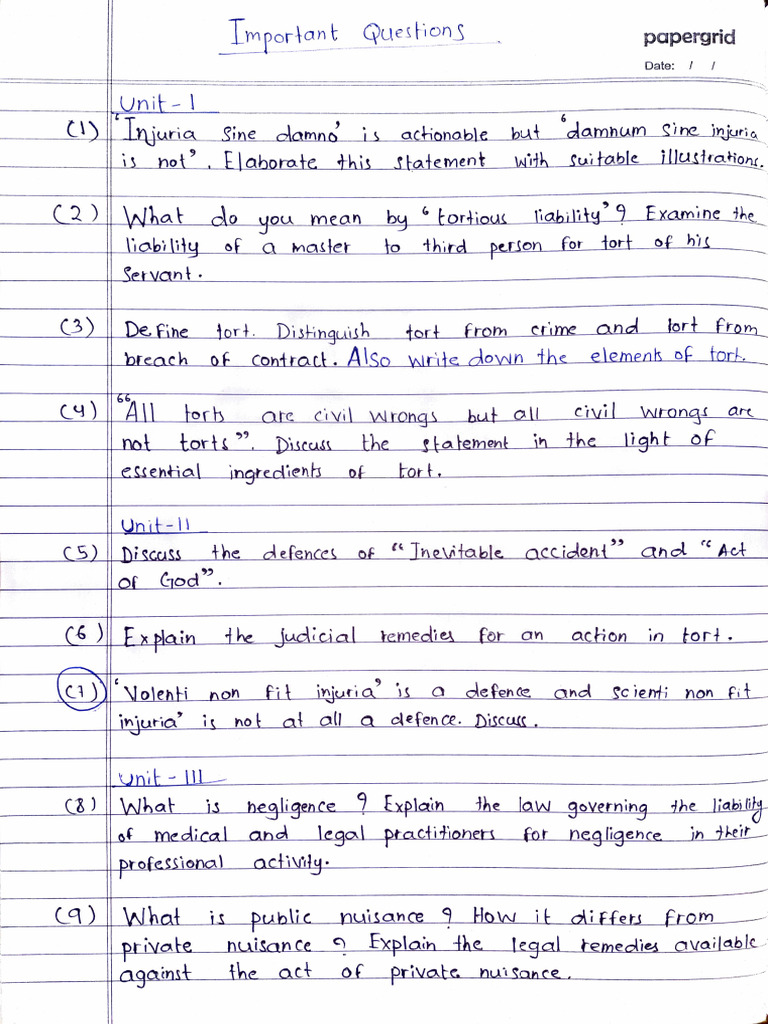 Important Questions
papergrid
Date: / /
Unit-I
(1) 'Injuria sine damno' is actionable but 'damnum sine injuria
is not'. Elaborate this statement with suitable illustrations.
(2) What do you mean by 'tortious liability'? Examine the
liability of a master to third person for tort of his
servant.
(3) Define tort. Distinguish tort from crime and tort from
breach of contract. Also write down the elements of tort.
(4) "All torts are civil wrongs but all civil wrongs are
not torts". Discuss the statement in the light of
essential ingredients of tort.
Unit-II
(5) Discuss the defences of "Inevitable accident" and "Act
of God".
(6) Explain the judicial remedies for an action in tort.
(7) 'Volenti non fit injuria' is a defence and scienti non fit
injuria' is not at all a defence. Discuss.
Unit-III
(8) What is negligence? Explain the law governing the liability
of medical and legal practitioners for negligence in their
professional activity.
(9) What is public nuisance? How it differs from
private nuisance? Explain the legal remedies available
against the act of private nuisance.